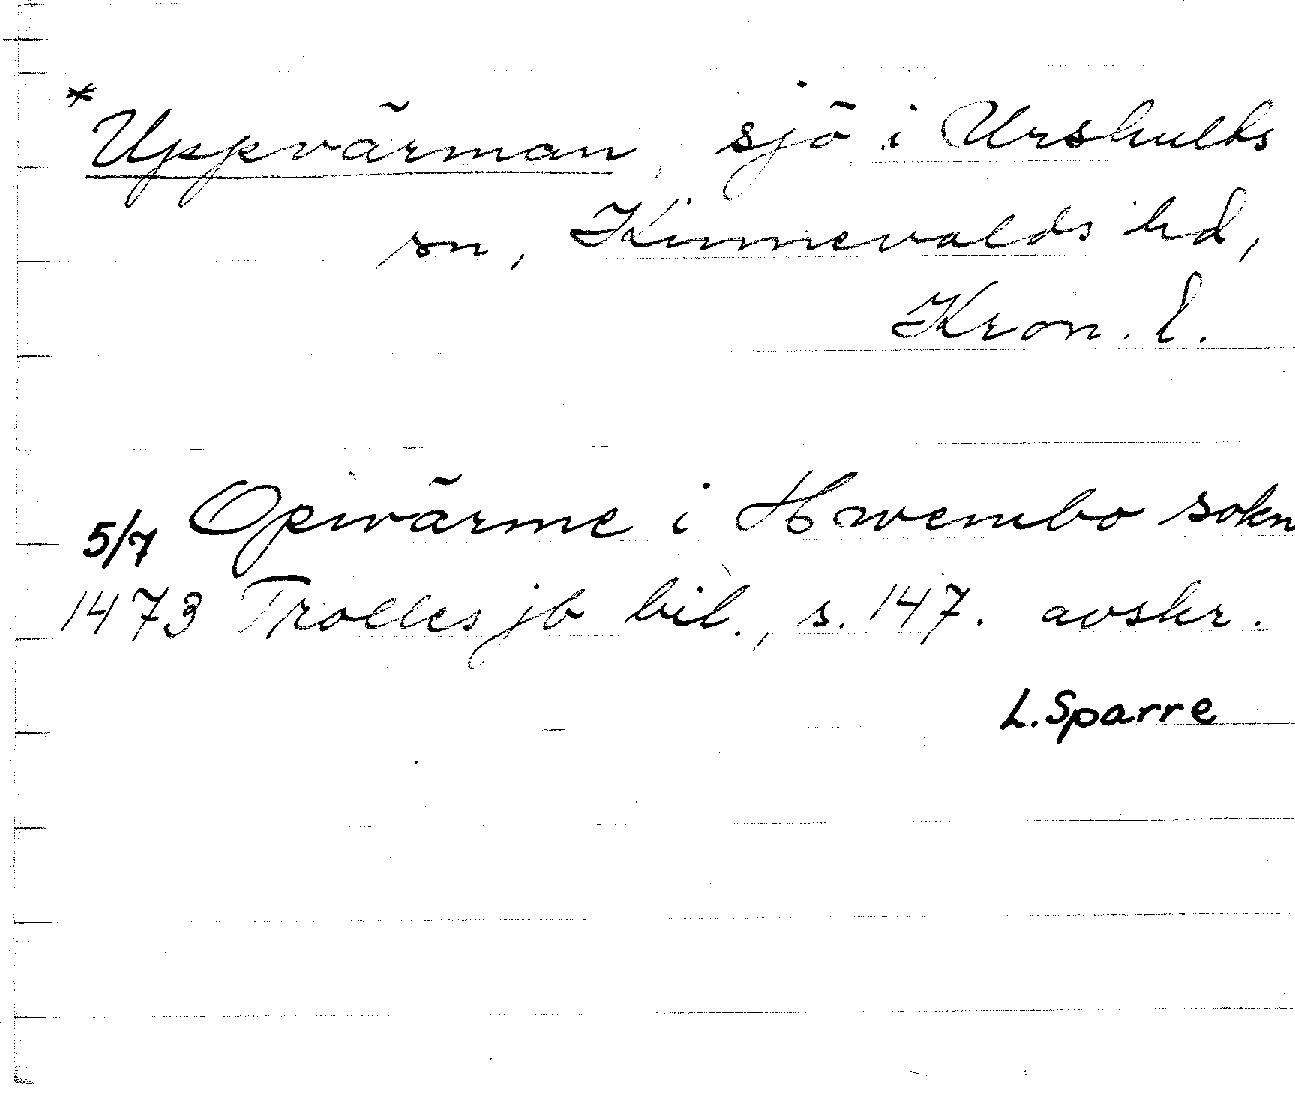 *Uppvärman, sjö i Urshults
sn, Kinnevalds hd,
Kron. l.
5/7 Opwärme i Hwembo sokn
1473 Trolles jb bil., s. 147. avskr.
L. Sparre